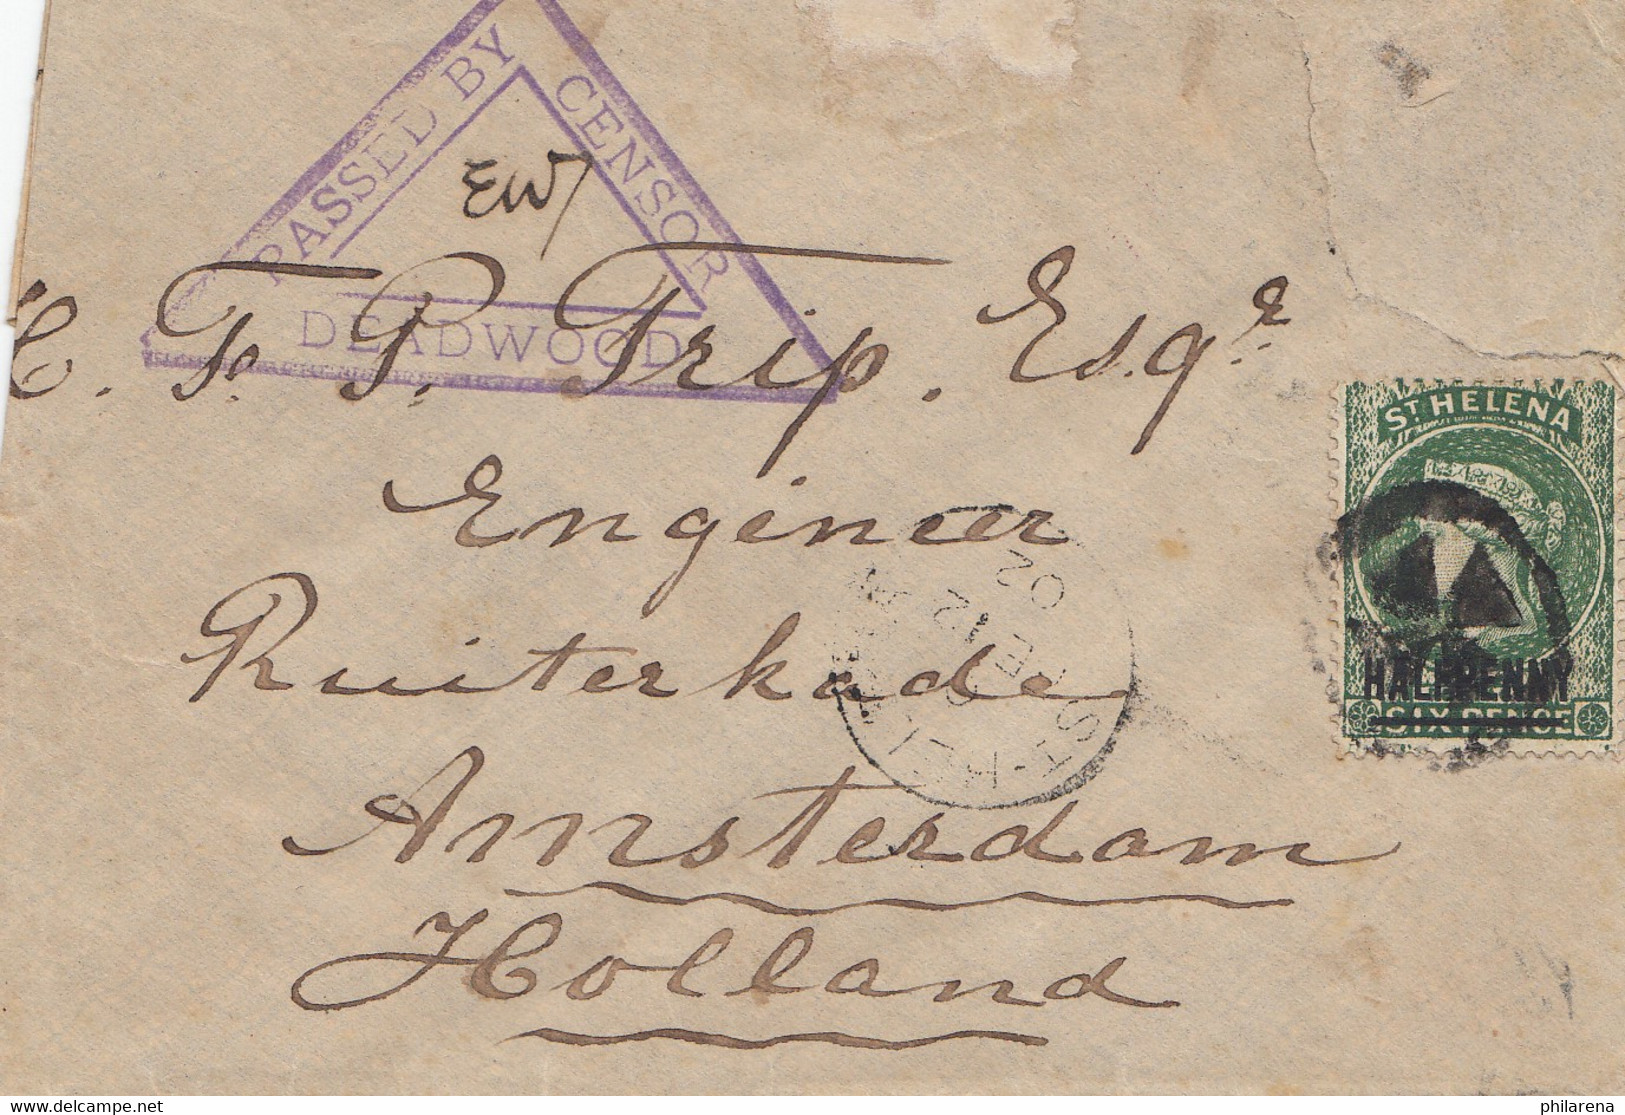 PASSED BY
CENSOR
DEADWOOD
EW
H. T. P. Trip. Esq.re
Engineer
Ruiterkade
Amsterdam
Holland
ST. HELENA
HALFPENNY
SIX PENCE
ST. HELENA
FE 12
02
www.delcampe.net
philarena